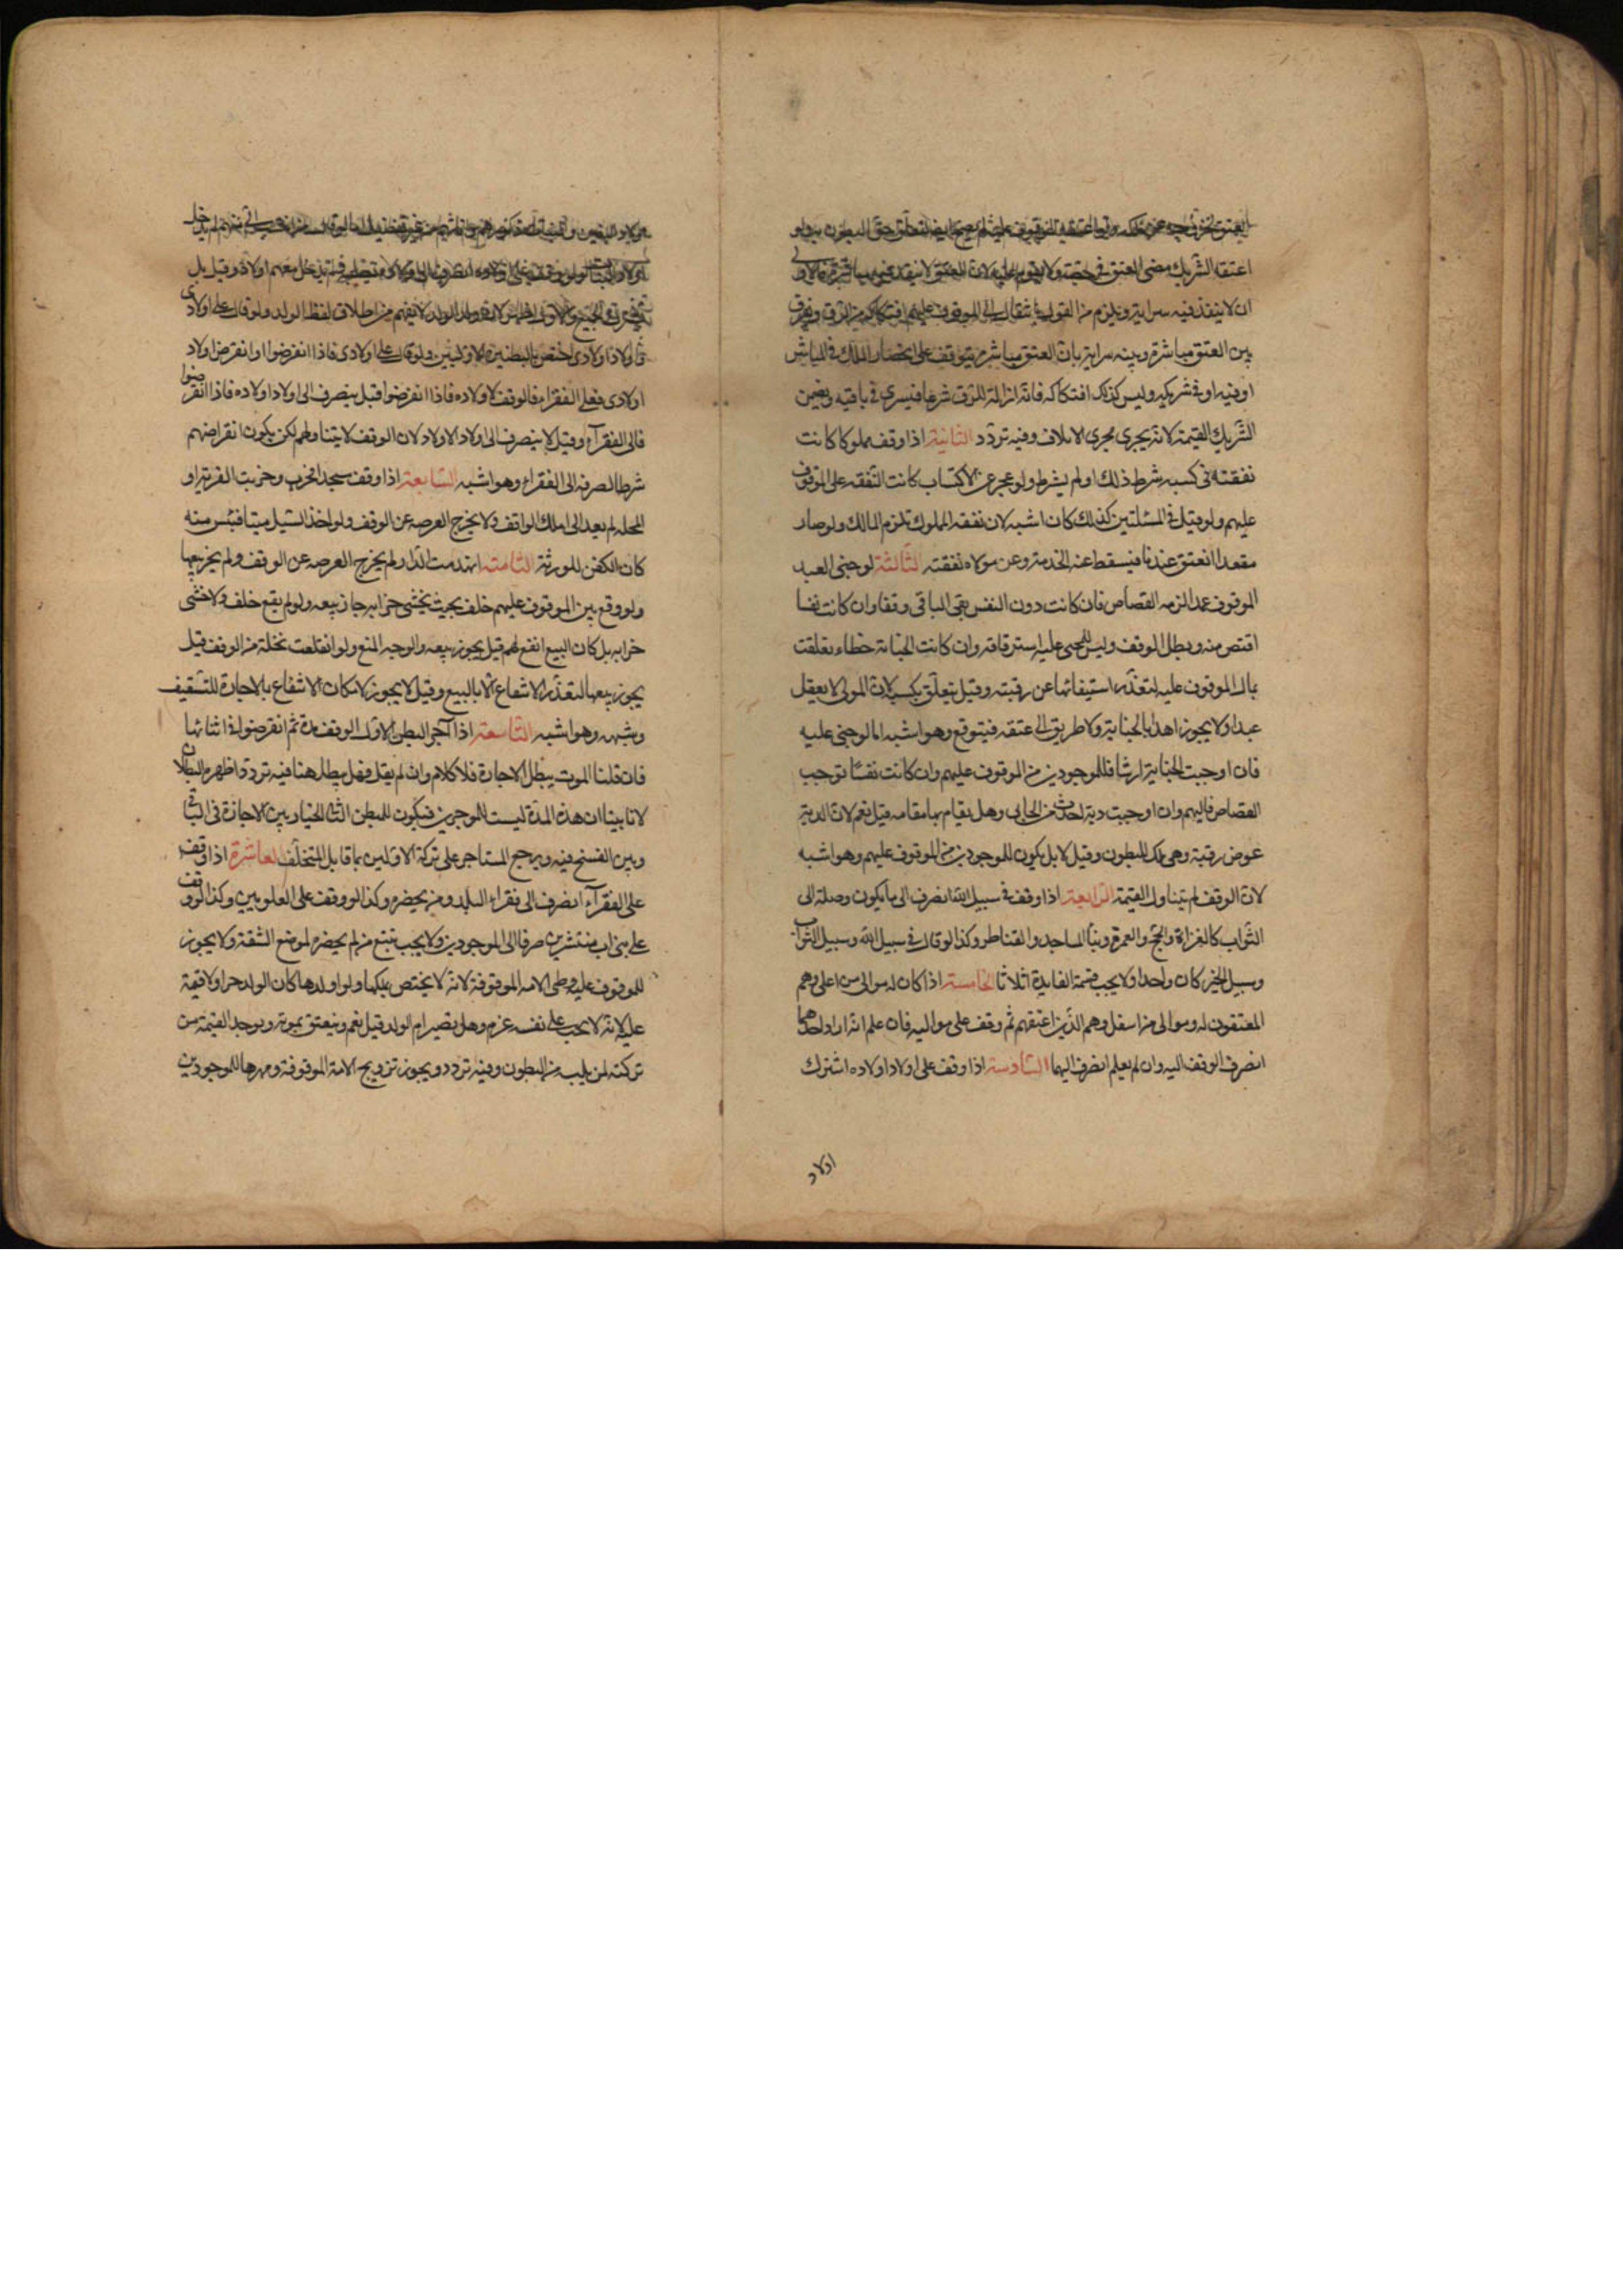 العتق لخروجه عن ملكه ولو اعتقه الموقوف عليه لم يصح ايضا لتعلق حق البطون به ولو
اعتقه الشريك مضى العتق في حصته ولم يقوم عليه لان العتق لا ينفذ فيه مباشرة فالاولى
ان لا ينفذ فيه سراية ويلزم من القول بانتقاله الى الموقوف عليهم افتكاكه من الرق ويفرق
بين العتق مباشرة وبينه سراية بان العتق مباشرة يتوقف على انحصار الملك في المباشر
او فيه او في شريكه وليس كذلك افتكاكه فانه ازالة للرق شرعا فيسري في باقيه ويضمن
الشريك القيمة لانه يجري مجرى الاتلاف وفيه تردد الثانية اذا وقف مملوكا كانت
نفقته في كسبه شرط ذلك او لم يشرط ولو عجز عن الاكتساب كانت النفقه على الموقوف
عليهم ولو قيل في المسئلتين كذلك كان اشبه لان نفقة المملوك تلزم المالك ولو صار
مقعدا انعتق عندنا فيسقط عنه الخدمة وعن مولاه نفقته الثالثة لو جنى العبد
الموقوف عمدا لزمه القصاص فان كانت دون النفس بقى الباقي وقفا وان كانت نفسا
اقتص منه وبطل الوقف وليس للمجنى عليه استرقاقه وان كانت الجناية خطاء تعلقت
بمال الموقوف عليه لتعذر استيفائها عن رقبته وقيل يتعلق بكسبه لان المولى لا يعقل
عبدا ولا يجوز اهدار الجناية ولا طريق الى عتقه فيتوقع وهو اشبه اما لو جنى عليه
فان اوجبت الجناية ارشا فللموجودين من الموقوف عليهم وان كانت نفسا توجب
القصاص فاليهم وان اوجبت دية اخذت من الجاني وهل يقام بها مقامه قيل نعم لان الدية
عوض رقبة وهي ملك للبطون وقيل لا بل يكون للموجودين من الموقوف عليهم وهو اشبه
لان الوقف لم يتناول القيمة الرابعة اذا وقف في سبيل الله انصرف الى ما يكون وصلة الى
الثواب كالغزاة والحج والعمرة وبناء المساجد والقناطر وكذا لو قال في سبيل الله وسبيل الثواب
وسبيل الخير كان واحدا ولا يجب قسمة الفايدة اثلاثا الخامسة اذا كان له موالى من اعلى وهم
المعتقون له وموالى من اسفل وهم الذين اعتقهم ثم وقف على مواليه فان علم انه اراد احدهما
انصرف الوقف اليه وان لم يعلم انصرف اليهما السادسة اذا وقف على اولاد اولاده اشترك
اولاد
اولاد البنين والبنات ذكورهم واناثهم من غير تفضيل اما لو قال من انتسب الي منهم لم يدخل
اولاد البنات ولو وقف على اولاده انصرف الى اولاده لصلبه ولم يدخل معهم اولاد وقيل بل
يشترك الجميع والاول اظهر لان ولد الولد لا يفهم من اطلاق لفظ الولد ولو قال على اولادى
واولاد اولادى اختص بالبطنين الاوليين ولو قال على اولادى فاذا انقرضوا وانقرض اولاد
اولادى فعلى الفقراء فالوقف لاولاده فاذا انقرضوا قيل يصرف الى اولاد اولاده فاذا انقرضوا
فالى الفقرآء وقيل لا يتصرف الى اولاد الاولاد لان الوقف لا يتناولهم لكن يكون انقراضهم
شرطا لصرفه الى الفقراء وهو اشبه السابعة اذا وقف مسجدا فخرب وخربت القرية او
المحله لم يعد الى املاك الواقف ولا يخرج العرصه عن الوقف ولو اخذ السيل ميتا فيئس منه
كان الكفن للورثة الثامنة انهدمت الدار لم يخرج العرصه عن الوقف ولم يجز بيعها
ولو وقع بين الموقوف عليهم خلف بحيث يخشى خرابه جاز بيعه ولو لم يقع خلف ولا خشى
خرابه بل كان البيع انفع لهم قيل يجوز بيعه والوجه المنع ولو انقلعت نخلة من الوقف قيل
يجوز بيعها لتعذر الانتفاع الا بالبيع وقيل لا يجوز لامكان الانتفاع بالاجارة للتسقيف
وشبهه وهو اشبه التاسعة اذا آجر البطن الاول الوقف مدة ثم انقرضوا في اثنائها
فان قلنا الموت يبطل الاجارة فلا كلام وان لم يقل فهل يبطل هنا فيه تردد اظهره البطلان
لانا بينا ان هذه المدة ليست للموجرين فيكون للبطن الثاني الخيار بين الاجازة في الباقي
وبين الفسخ فيه ويرجع المستاجر على تركة الاولين بما قابل المتخلف العاشرة اذا وقف
على الفقرآء انصرف الى فقراء البلد ومن يحضره وكذا لو وقف على العلويين وكذا لو وقف
على بنى اب منتشرين صرف الى الموجودين ولا يجب تتبع من لم يحضره لموضع المشقة ولا يجوز
للموقوف عليه وطى الامه الموقوفة لانه لا يختص بملكها ولو اولدها كان الولد حرا ولا قيمة
عليه لانه لا يجب على نفسه غرم وهل تصير ام الولد قيل نعم وينعتق بموته ويوخذ القيمة من
تركته لمن يليه من البطون وفيه تردد ويجوز تزويج الامة الموقوفة ومهرها للموجودين